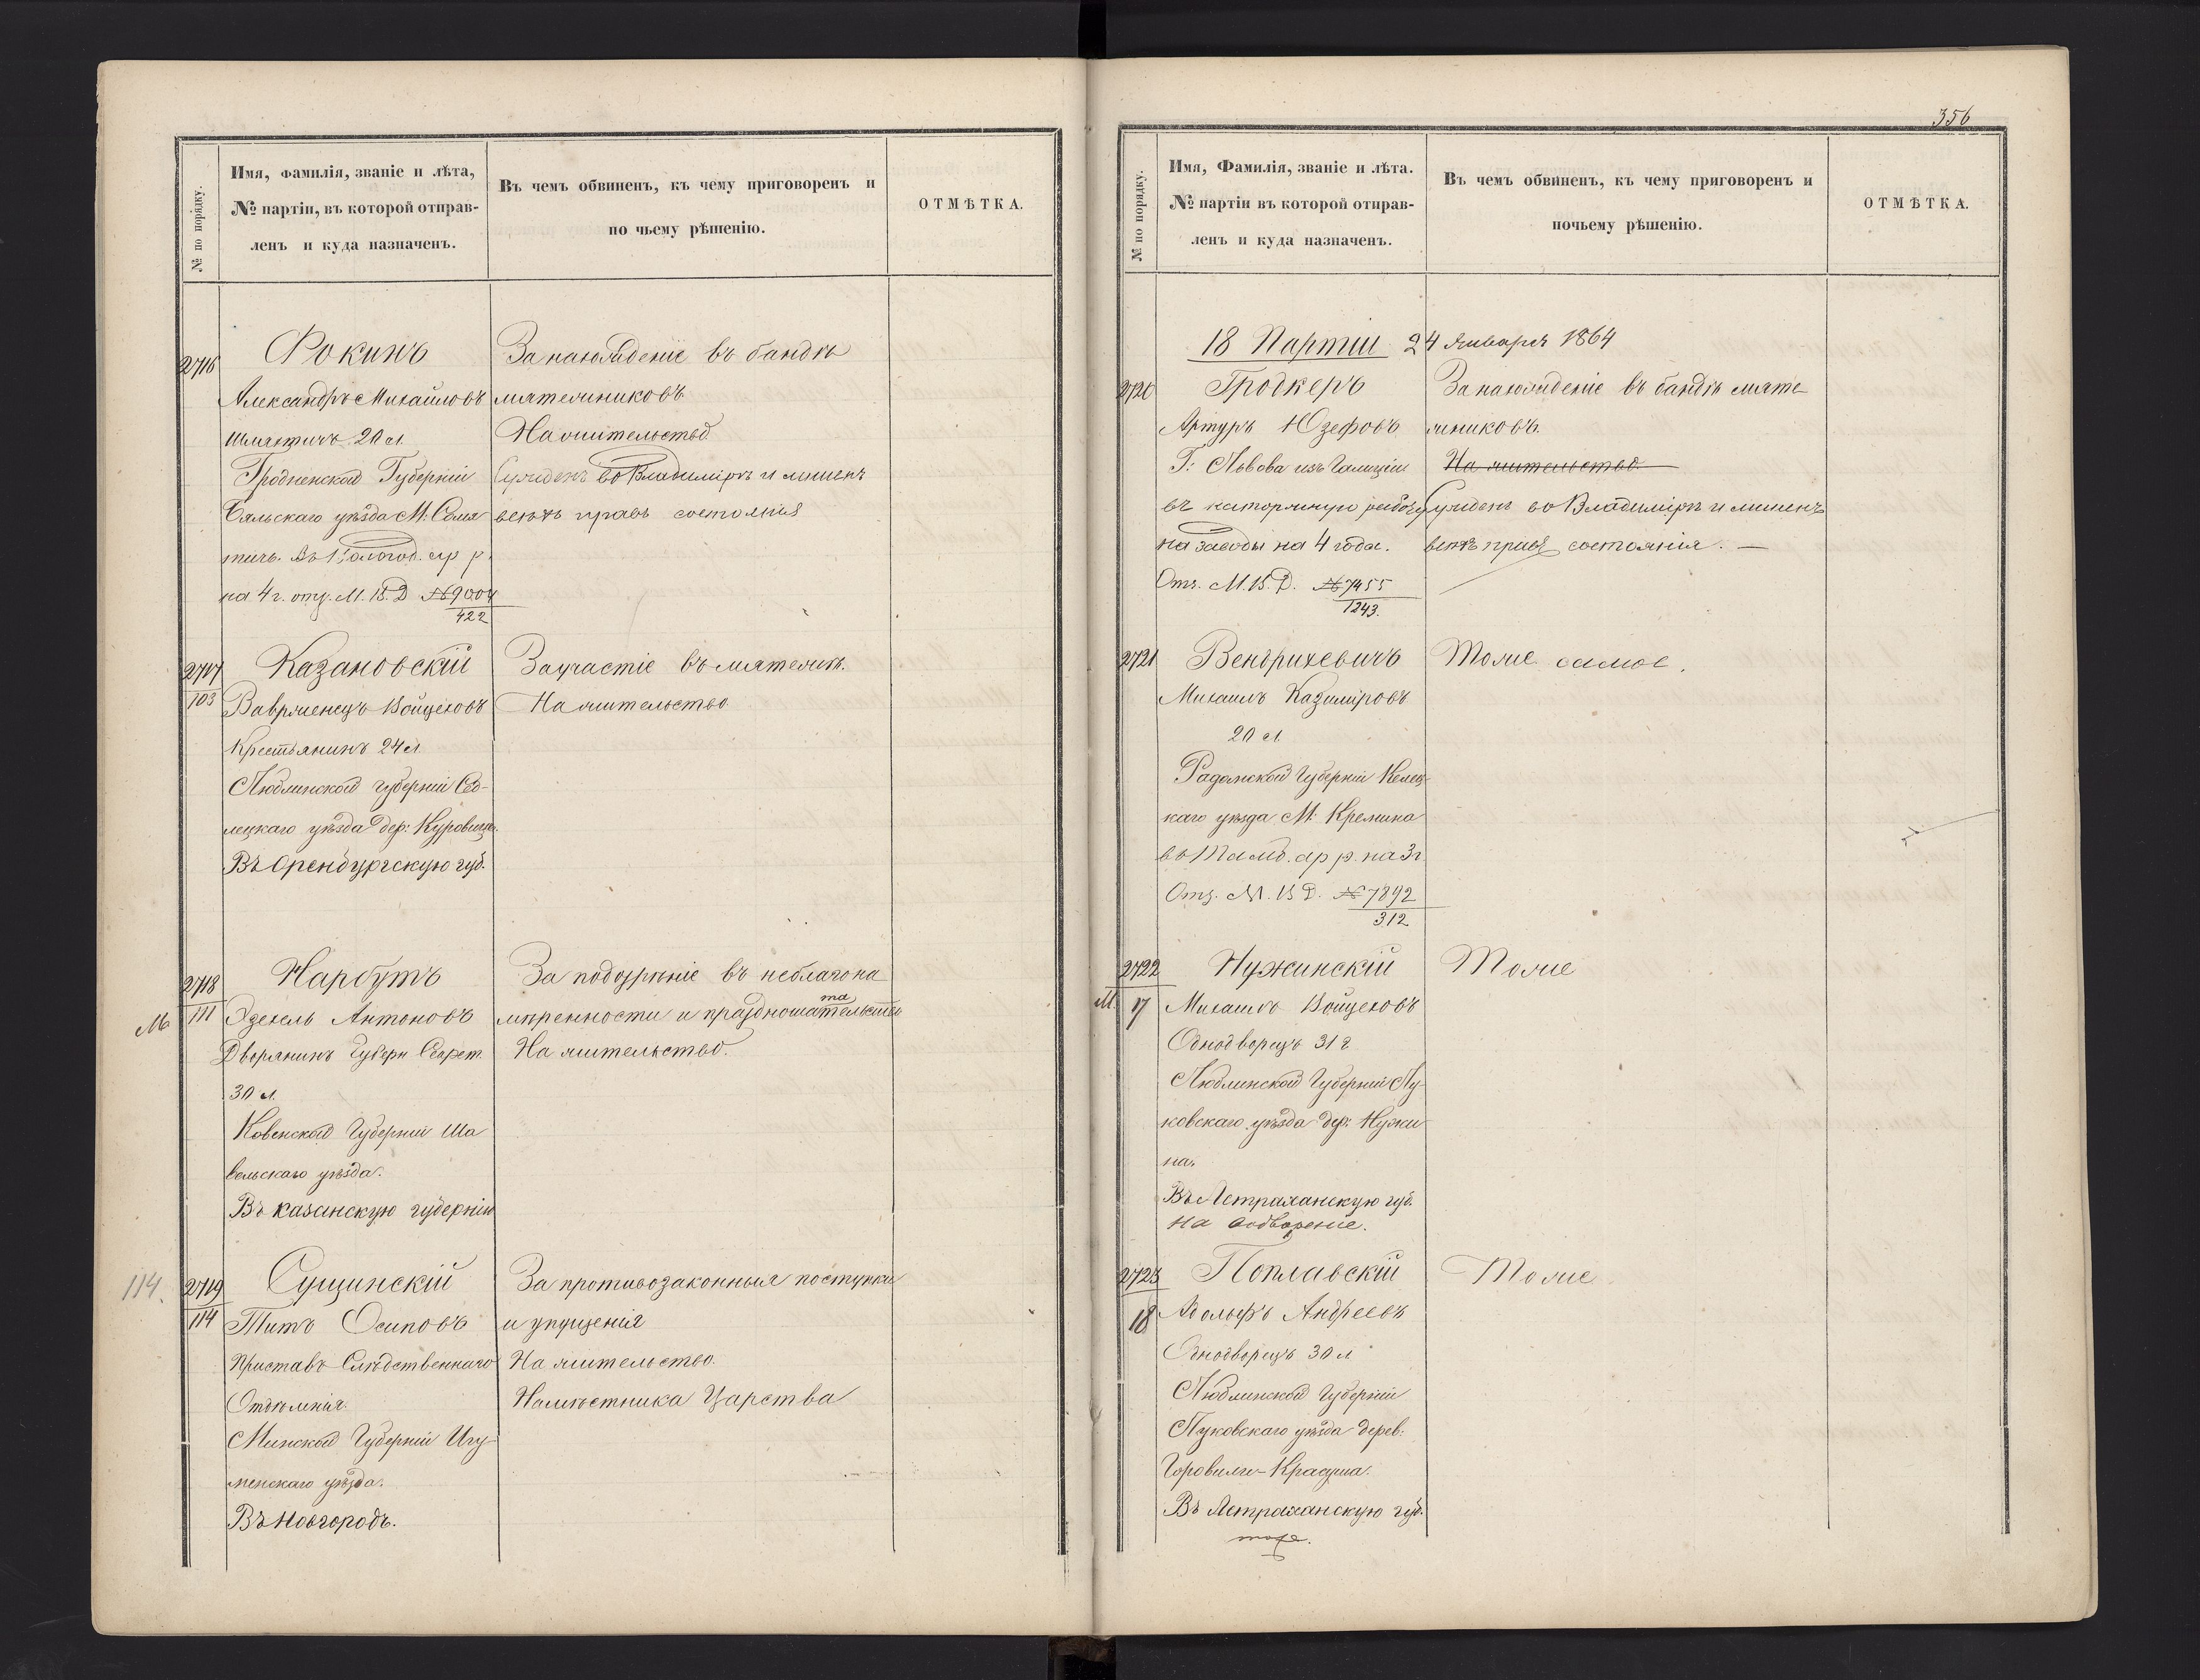 № по порядку.
Имя, фамилія, званіе и лѣта,
№ партіи, въ которой отправ-
ленъ и куда назначенъ.
Въ чемъ обвиненъ, къ чему приговоренъ и
по чьему рѣшенію.
ОТМѢТКА.
2716
Фокинъ
Александръ Михайловъ
шляхтичъ 20 л.
Гродненской Губерніи
Бяльскаго уѣзда М: Семя-
тичь. Въ Вологод. ар р.
на 4 г. отз. М. В. Д №9004
422
За нахожденіе въ бандѣ
мятежниковъ
На жительство
Сужденъ во Владимірѣ и лишенъ
всѣхъ правъ состоянія
2717
103
Казановскій
Ваврженецъ Войцеховъ
Крестьянинъ 24 л
Люблинской губерніи Сѣд-
лецкаго уѣзда дер:
Въ Оренбургскую губ.
За участіе въ мятежѣ.
На жительство
М
2718
111
Нарбутъ
Антоновъ
Дворянинъ Губерн Секрет.
30 л.
Ковенской Губерніи Ша
вельскаго уѣзда.
Въ казанскую губернію
За подозрѣніе въ неблагона
мѣренности и празднош
та
На жительство.
114.
2719
114
Сущинскій
Титъ Осиповъ
Приставъ Слѣдственнаго
Отдѣленія.
Минской Губерніи Игу-
менскаго уѣзда.
Въ Новгородъ.
За противозаконныя поступки
и упущенія
На жительство.
Намѣстника Царства
356
№ по порядку.
Имя, Фамилія, званіе и лѣта.
№ партіи въ которой отправ-
ленъ и куда назначенъ.
Въ чемъ обвиненъ, къ чему приговоренъ и
почьему рѣшенію.
ОТМѢТКА.
18 Партіи 24 Января 1864
2720
Гродкеръ
Артуръ Юзефовъ
Г: Львова изъ Галиціи
въ каторжную работу
на заводы на 4 года.
Отз. М. В. Д. №7455
1243.
За нахожденіе въ бандѣ мяте-
жниковъ.
На жительство
Сужденъ во Владимірѣ и лишенъ
всѣхъ правъ состоянія. —
2721
Вендрихевичъ
Михаилъ Казиміровъ
20 л.
Радомской Губерніи Келец-
каго уѣзда М: Кремина
въ Тамб. ар р. на 3 г.
Отз. М. В Д. №7892
312
Тоже самое.
2722
М.
17
Нужинскій
Михаилъ Войцеховъ
Однодворецъ 31 г.
Люблинской Губерніи Лу-
ковскаго уѣзда дер: Нужи
на.
Въ Астраханскую губ.
на водвореніе.
Тоже
2723
18
Поплавскій
Адольфъ Андреевъ
Однодворецъ 30 л
Люблинской Губерніи
Луковскаго уѣзда дерев:
Въ Астраханскую губ.
тоже.
Тоже